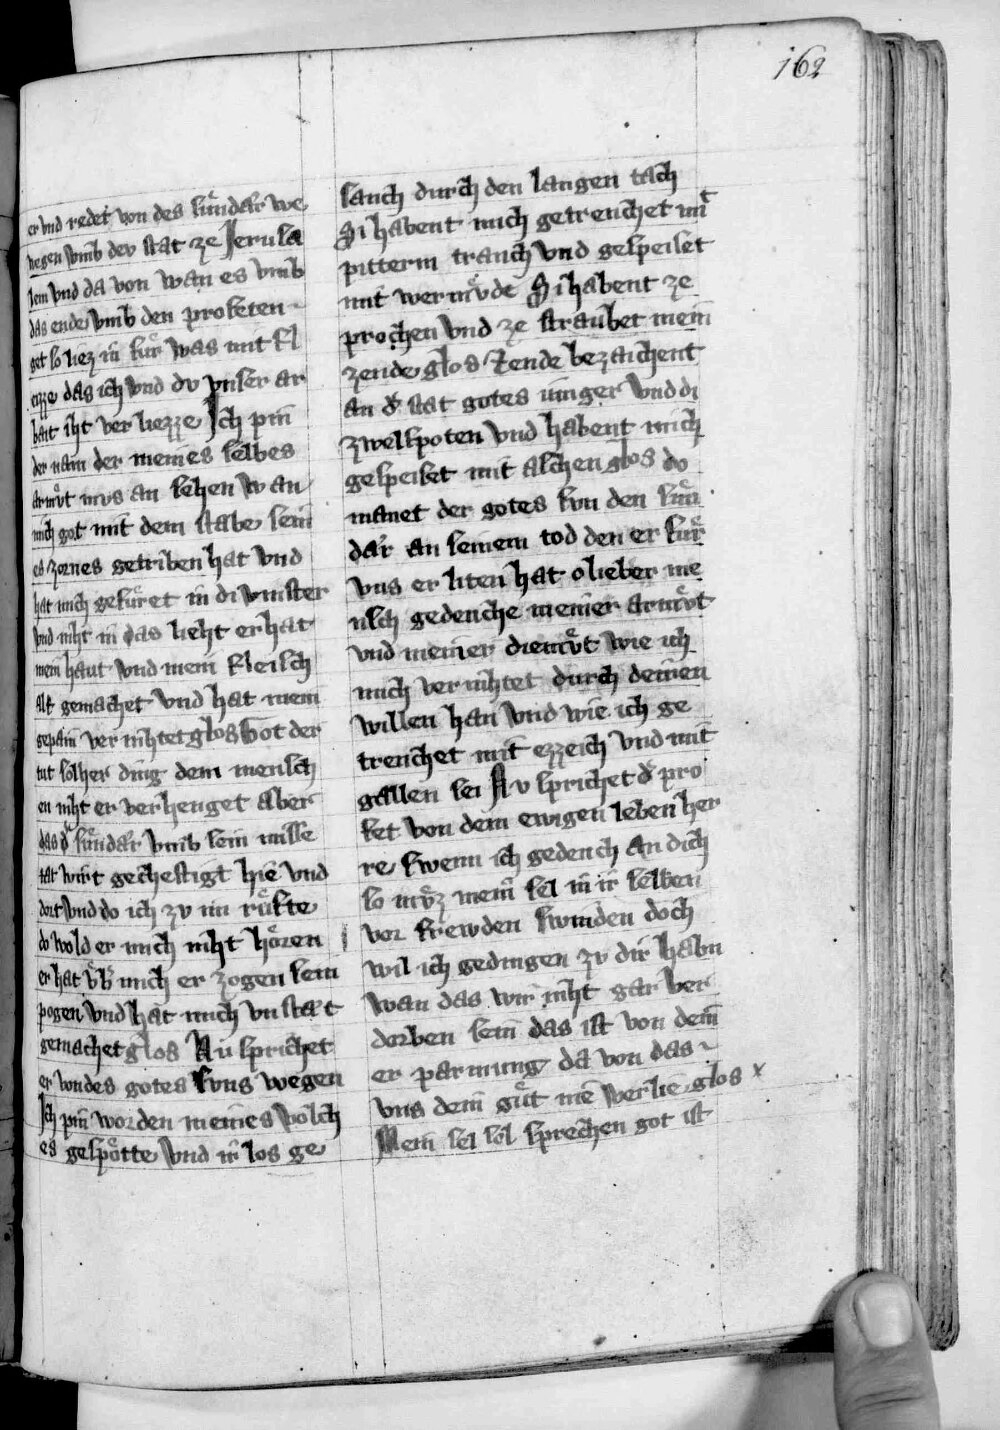 162
er vnd redet von des sundar we
wegen vmb dev stat ze Jerusa
lem vnd da von wan es vmb
das ende vmb den profeten
get so liez in fuͤr was mit fl
ezze das ich vnd dv vnser ar
bait iht verliezze Ich pin
der nam der meines selbes
armuͦt mvs an sehen wan
mich got mit dem stabe sein
es zornes getriben hat vnd
hat mich gefuͤret in di vinster
vnd niht in das lieht er hat
mein haut vnd mein fleisch
alt gemachet vnd hat mein
gepain vernihtet glos Got der
tut solher ding dem mensch
en niht er verhenget aber
das d̾ suͤndar vmb sein misse
tat wirt gechestigt hie vnd
dort vnd do ich zv im ruͤfte
do wold er mich niht hoͤren
er hat vͤb̾ mich er zogen sein
pogen vnd hat mich vnstaͤt
gemachet glos Nu sprichet
er von des gotes svns wegen
Ich pin worden meines volch
es gespoͤtte vnd in̄ los ge
sanch durch den langen tach
Si habent mich getrenchet mit
pitterm tranch vnd gespeiset
mit wermuͦde Si habent ze
prochen vnd ze straubet mein
zende glos Zende bezaichent
an d̾ stat gotes iunger vnd di
zwelfpoten vnd habent mich
gespeiset mit aschen glos do
manet der gotes svn den suͤn
dar an seinem tod den er fuͤr
vns erliten hat o lieber me
nsch gedenche meiner armuͦt
vnd meiner diemuͦt wie ich
mich vernihtet durch deinen
willen han vnd wie ich ge
trenchet mit ezzeich vnd mit
gallen sei Nv sprichet d̾ pro
fet von dem ewigen leben her
re swenn ich gedench an dich
so muͦz mein sel in ir selben
vor frewden swinden doch
wil ich gedingen zv dir habn
wan das wir niht gar ver
dorben sein das ist von dein
er parmung da von das
vns dein guͤt nie verlie glos x
Mein sel sol sprechen got ist